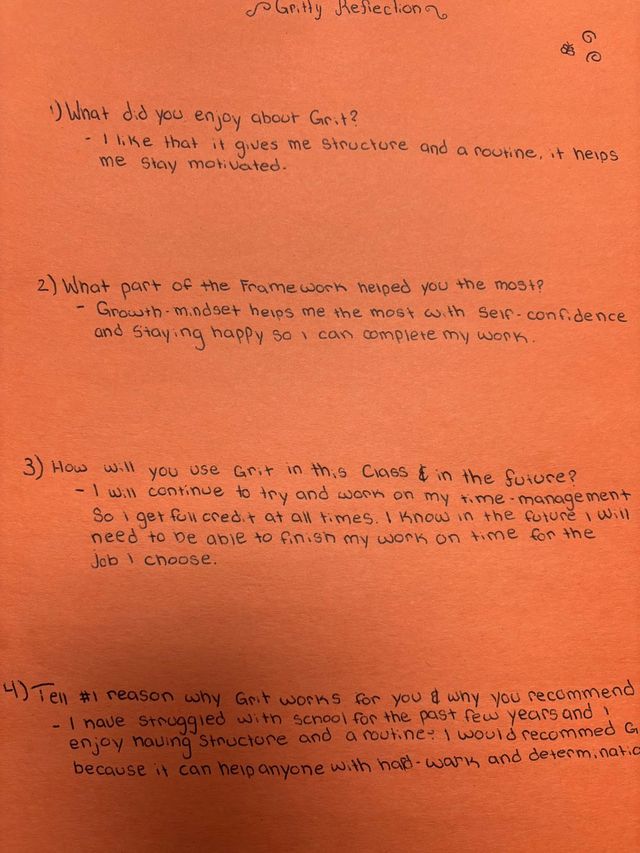 Gritty Reflection
1) What did you enjoy about Grit?
- I like that it gives me structure and a routine, it helps
me stay motivated.
2) What part of the Framework helped you the most?
- Growth-mindset helps me the most with self-confidence
and staying happy so i can complete my work.
3) How will you use Grit in this Class & in the future?
- I will continue to try and work on my time-management
So i get full credit at all times. I know in the future i will
need to be able to finish my work on time for the
job i choose.
4) Tell #1 reason why Grit works for you & why you recommend
- I have struggled with school for the past few years and i
enjoy having structure and a routine. I would recommed G
because it can help anyone with hard-work and determinatio